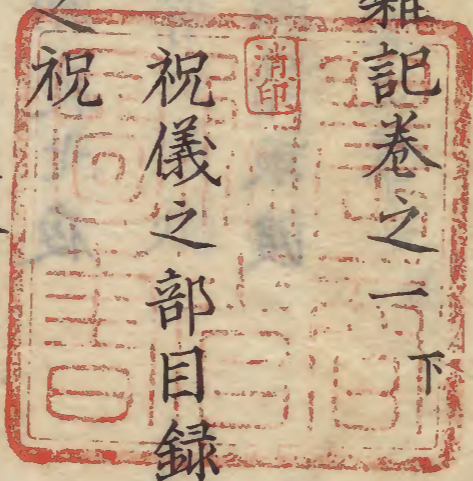 雑記巻之一 下
消印
祝儀之部目録
之祝